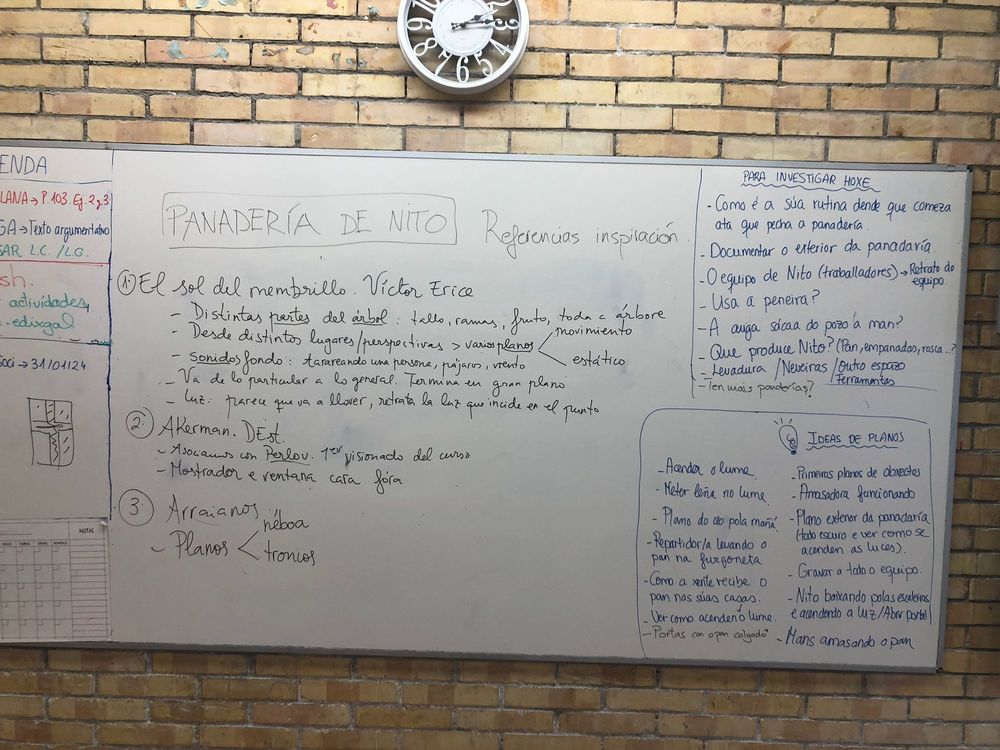 ENDA
LANA → P. 103. Ej. 2 y 3
GA → Texto argumentativo
SAR L.C. / L.G.
sh.
actividades,
-edixgal
Soci → 31/01/24
NOTAS
PANADERÍA DE NITO
Referencias inspiración.
① El sol del membrillo. Víctor Erice
- Distintas partes del árbol: tallo, ramas, fruto, toda a árbore
- Desde distintos lugares/perspectivas > varios planos < movimiento
estático
- sonidos fondo: tarareando una persona, pájaros, viento
- Va de lo particular a lo general. Termina en gran plano
- Luz: parece que va a llover, retrata la luz que incide en el punto
② Akerman. DEst.
- Asociamos con Perlov. 1er visionado del curso
- Mostrador e ventana cara fóra
③ Arraianos.
- Planos < néboa
troncos
PARA INVESTIGAR HOXE
- Como é a súa rutina dende que comeza
ata que pecha a panadería.
- Documentar o exterior da panadaría.
- O equipo de Nito (traballadores) → Retrato do
equipo.
- Usa a peneira?
- A auga sácaa do pozo a man?
- Que produce Nito? (Pan, empanadas, rosca...?
- Levadura / Neveiras / Outro espazo
Ferramentas
- Ten mais panderías?
IDEAS DE PLANOS
- Acender o lume.
- Meter leña no lume
- Plano do ceo pola mañá
- Repartidor/a levando o
pan na furgoneta
- Como a xente recibe o
pan nas súas casas.
- Ver como acenden o lume.
- Portas con o pan colgado
- Primeiros planos de obxectos
- Amasadora funcionando
- Plano exterior da panadaría
(todo escuro e ver como se
acenden as luces).
- Gravar a todo o equipo.
- Nito baixando polas escaleiras
e acendendo a luz / Abrir portal
- Mans amasando o pan
12
1
2
3
5
6
7
8
9
10